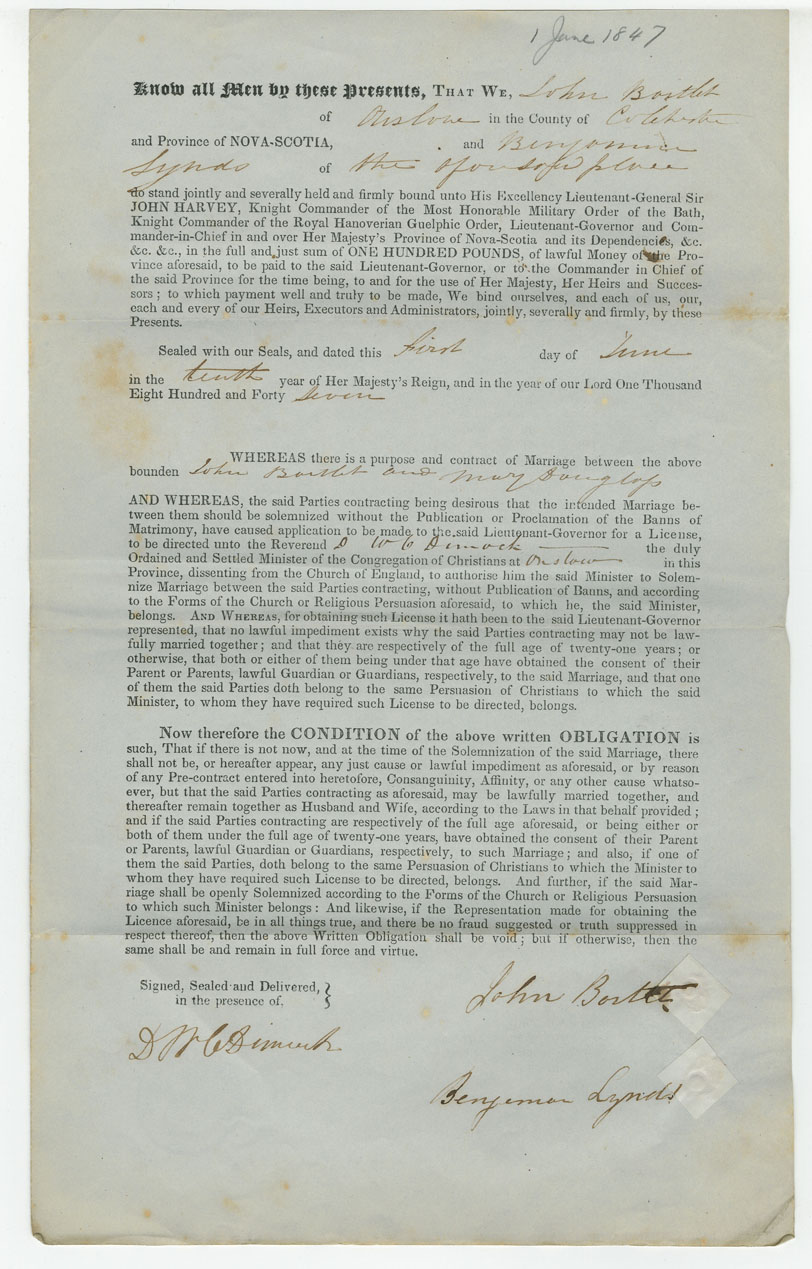 1 June 1847
Know all Men by these Presents, THAT WE, John Bortlet
of Onslow in the County of Colchester
and Province of NOVA-SCOTIA, and Benjamin
Lynds of the aforesaid place
do stand jointly and severally held and firmly bound unto His Excellency Lieutenant-General Sir
JOHN HARVEY, Knight Commander of the Most Honorable Military Order of the Bath,
Knight Commander of the Royal Hanoverian Guelphic Order, Lieutenant-Governor and Com-
mander-in-Chief in and over Her Majesty's Province of Nova-Scotia and its Dependencies, &c.
&c. &c., in the full and just sum of ONE HUNDRED POUNDS, of lawful Money of the Pro-
vince aforesaid, to be paid to the said Lieutenant-Governor, or to the Commander in Chief of
the said Province for the time being, to and for the use of Her Majesty, Her Heirs and Succes-
sors; to which payment well and truly to be made, We bind ourselves, and each of us, our,
each and every of our Heirs, Executors and Administrators, jointly, severally and firmly, by these
Presents.
Sealed with our Seals, and dated this first day of June
in the tenth year of Her Majesty's Reign, and in the year of our Lord One Thousand
Eight Hundred and Forty seven
WHEREAS there is a purpose and contract of Marriage between the above
bounden John Bortlet and Mary Douglass
AND WHEREAS, the said Parties contracting being desirous that the intended Marriage be-
tween them should be solemnized without the Publication or Proclamation of the Banns of
Matrimony, have caused application to be made to the said Lieutenant-Governor for a License,
to be directed unto the Reverend D W C Dimock the duly
Ordained and Settled Minister of the Congregation of Christians at Onslow in this
Province, dissenting from the Church of England, to authorise him the said Minister to Solem-
nize Marriage between the said Parties contracting, without Publication of Banns, and according
to the Forms of the Church or Religious Persuasion aforesaid, to which he, the said Minister,
belongs. AND WHEREAS, for obtaining such License it hath been to the said Lieutenant-Governor
represented, that no lawful impediment exists why the said Parties contracting may not be law-
fully married together; and that they are respectively of the full age of twenty-one years; or
otherwise, that both or either of them being under that age have obtained the consent of their
Parent or Parents, lawful Guardian or Guardians, respectively, to the said Marriage, and that one
of them the said Parties doth belong to the same Persuasion of Christians to which the said
Minister, to whom they have required such License to be directed, belongs.
Now therefore the CONDITION of the above written OBLIGATION is
such, That if there is not now, and at the time of the Solemnization of the said Marriage, there
shall not be, or hereafter appear, any just cause or lawful impediment as aforesaid, or by reason
of any Pre-contract entered into heretofore, Consanguinity, Affinity, or any other cause whatso-
ever, but that the said Parties contracting as aforesaid, may be lawfully married together, and
thereafter remain together as Husband and Wife, according to the Laws in that behalf provided;
and if the said Parties contracting are respectively of the full age aforesaid, or being either or
both of them under the full age of twenty-one years, have obtained the consent of their Parent
or Parents, lawful Guardian or Guardians, respectively, to such Marriage; and also, if one of
them the said Parties, doth belong to the same Persuasion of Christians to which the Minister to
whom they have required such License to be directed, belongs. And further, if the said Mar-
riage shall be openly Solemnized according to the Forms of the Church or Religious Persuasion
to which such Minister belongs: And likewise, if the Representation made for obtaining the
Licence aforesaid, be in all things true, and there be no fraud suggested or truth suppressed in
respect thereof, then the above Written Obligation shall be void; but if otherwise, then the
same shall be and remain in full force and virtue.
Signed, Sealed and Delivered,
in the presence of.
John Bortlet
D W C Dimock
Benjeman Lynds